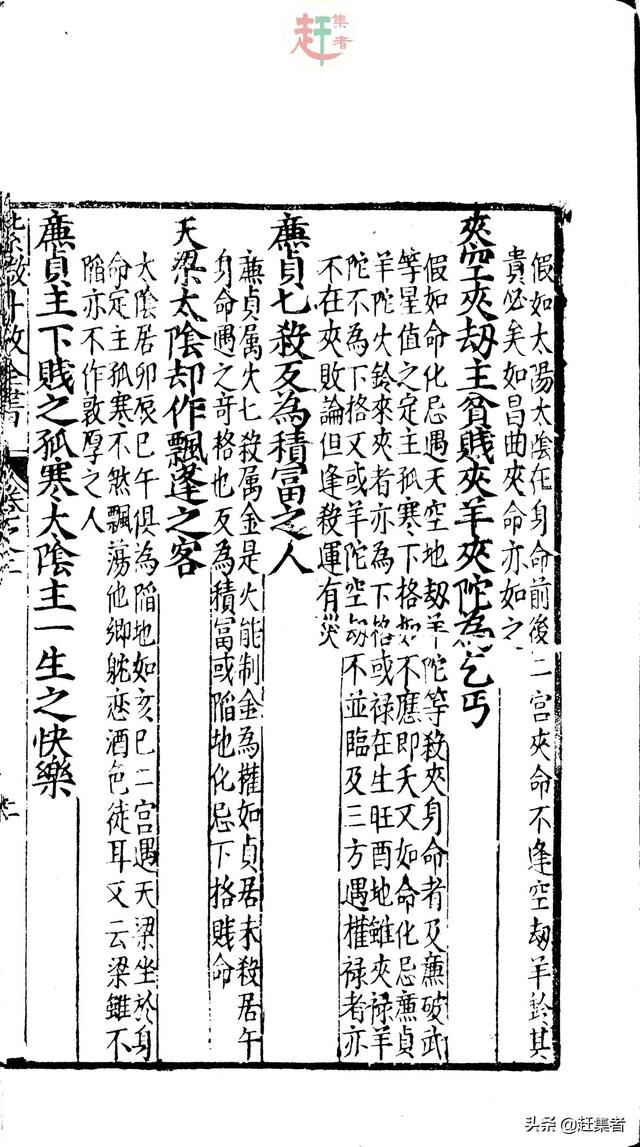 赶集者
假如太陽太陰在身命前後二宮夾命不逢空刼羊鈴其
貴必矣如昌曲夾命亦如之
夾空夾刼主貧賤夾羊夾陀為乞丐
假如命化忌遇天空地刼羊陀等殺夾身命者及廉破武
等星值之定主孤寒下格如不應即夭又如命化忌廉貞
羊陀火鈴來夾者亦為下格或祿在生旺酉地雖夾祿羊
陀不為下格又或羊陀空刼不並臨及三方遇權祿者亦
不在夾敗論但逢殺運有災
廉貞七殺反為積冨之人
廉貞属火七殺属金是火能制金為權如貞居未殺居午
身命遇之奇格也反為積冨或陷地化忌下格賤命
天梁太陰却作飄蓬之客
太陰居卯辰巳午俱為陷地如亥巳二宮遇天梁坐於身
命定主孤寒不然飄蕩他卿躭恋酒色徒耳又云梁雖不
陷亦不作敦厚之人
廉貞主下賤之孤寒太陰主一生之快樂
全書
頭条 @赶集者